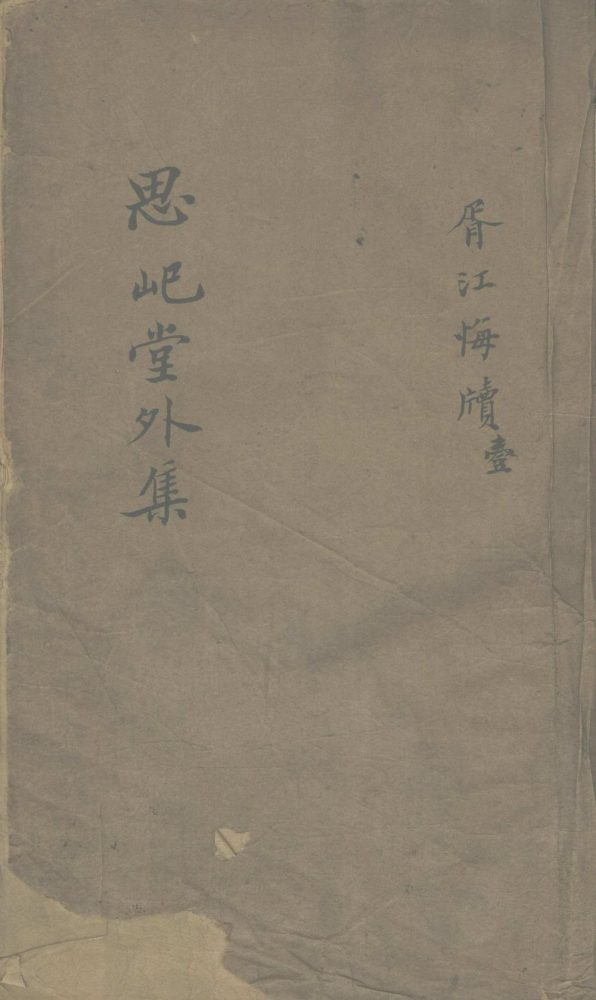 胥江悔牘壹
思𡵆堂外集